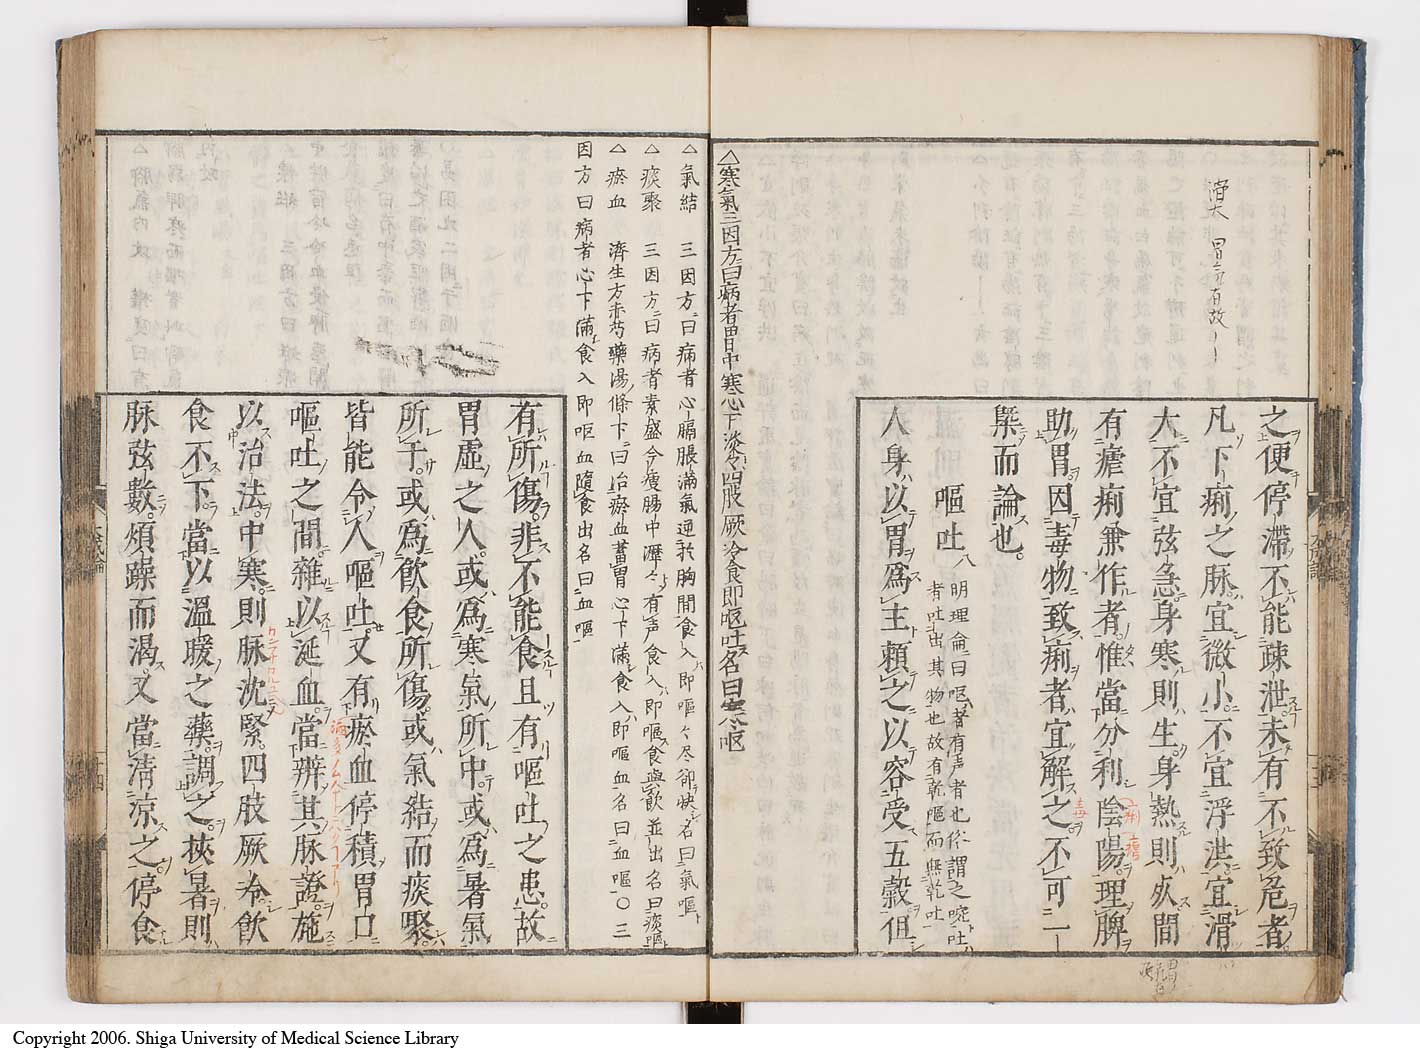 之便停滯不能疎泄未有不致危者
凡下痢之脉宜微小不宜浮洪宜滑
大不宜弦急身寒則生身熱則死間
有瘧痢兼作者惟當分利陰陽理脾
助胃因毒物致痢者宜解之不可一
槩而論也
嘔吐
明理論曰嘔者有声者也俗謂之啘吐
者吐出其物也故有乾嘔而無乾吐
人身以胃爲主賴之以容受五穀但
△寒氣三因方曰病者胃中寒心下淡々四肢厥冷食即嘔吐名曰寒嘔
△氣結 三因方曰病者心膈脹滿氣逆於胸間食入即嘔々尽卻快名曰氣嘔
△痰聚 三因方曰病者素盛今瘦腸中瀝々有声食入即嘔食與飲並出名曰痰嘔
△瘀血 濟生方赤芍藥湯條下曰治瘀血蓄胃心下滿食入即嘔血名曰血嘔○三
因方曰病者心下滿食入即嘔血隨食出名曰血嘔
有所傷非不能食且有嘔吐之患故
胃虛之人或爲寒氣所中或爲暑氣
所干或爲飲食所傷或氣結而痰聚
皆能令人嘔吐又有瘀血停積胃口
嘔吐之間雜以涎血當辨其脉證施
以治法中寒則脉沈緊四肢厥冷飲
食不下當以溫暖之藥調之挾暑則
脉弦數煩躁而渴又當清凉之停食
Copyright 2006. Shiga University of Medical Science Library